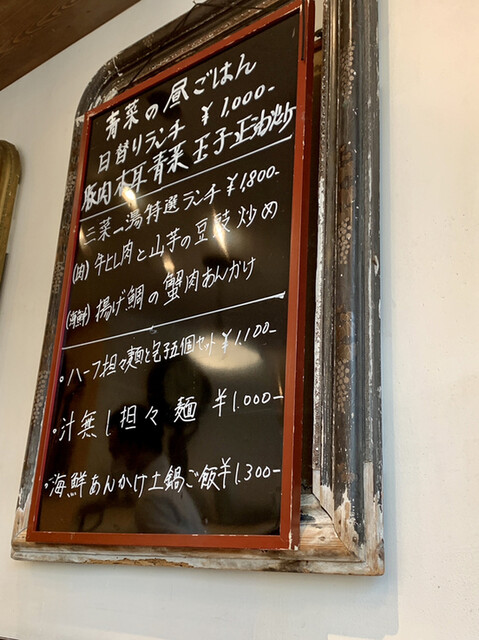 青菜の昼ごはん
日替りランチ ¥1,000-
豚肉木耳青菜玉子炒め
三菜一湯特選ランチ¥1,800-
(肉) 牛ヒレ肉と山芋の豆豉炒め
(海鮮) 揚げ鯛の蟹肉あんかけ
・ハーフ担々麺と包子五個セット¥1,100-
・汁無し担々麺 ¥1.000-
・海鮮あんかけ土鍋ご飯¥1.300-